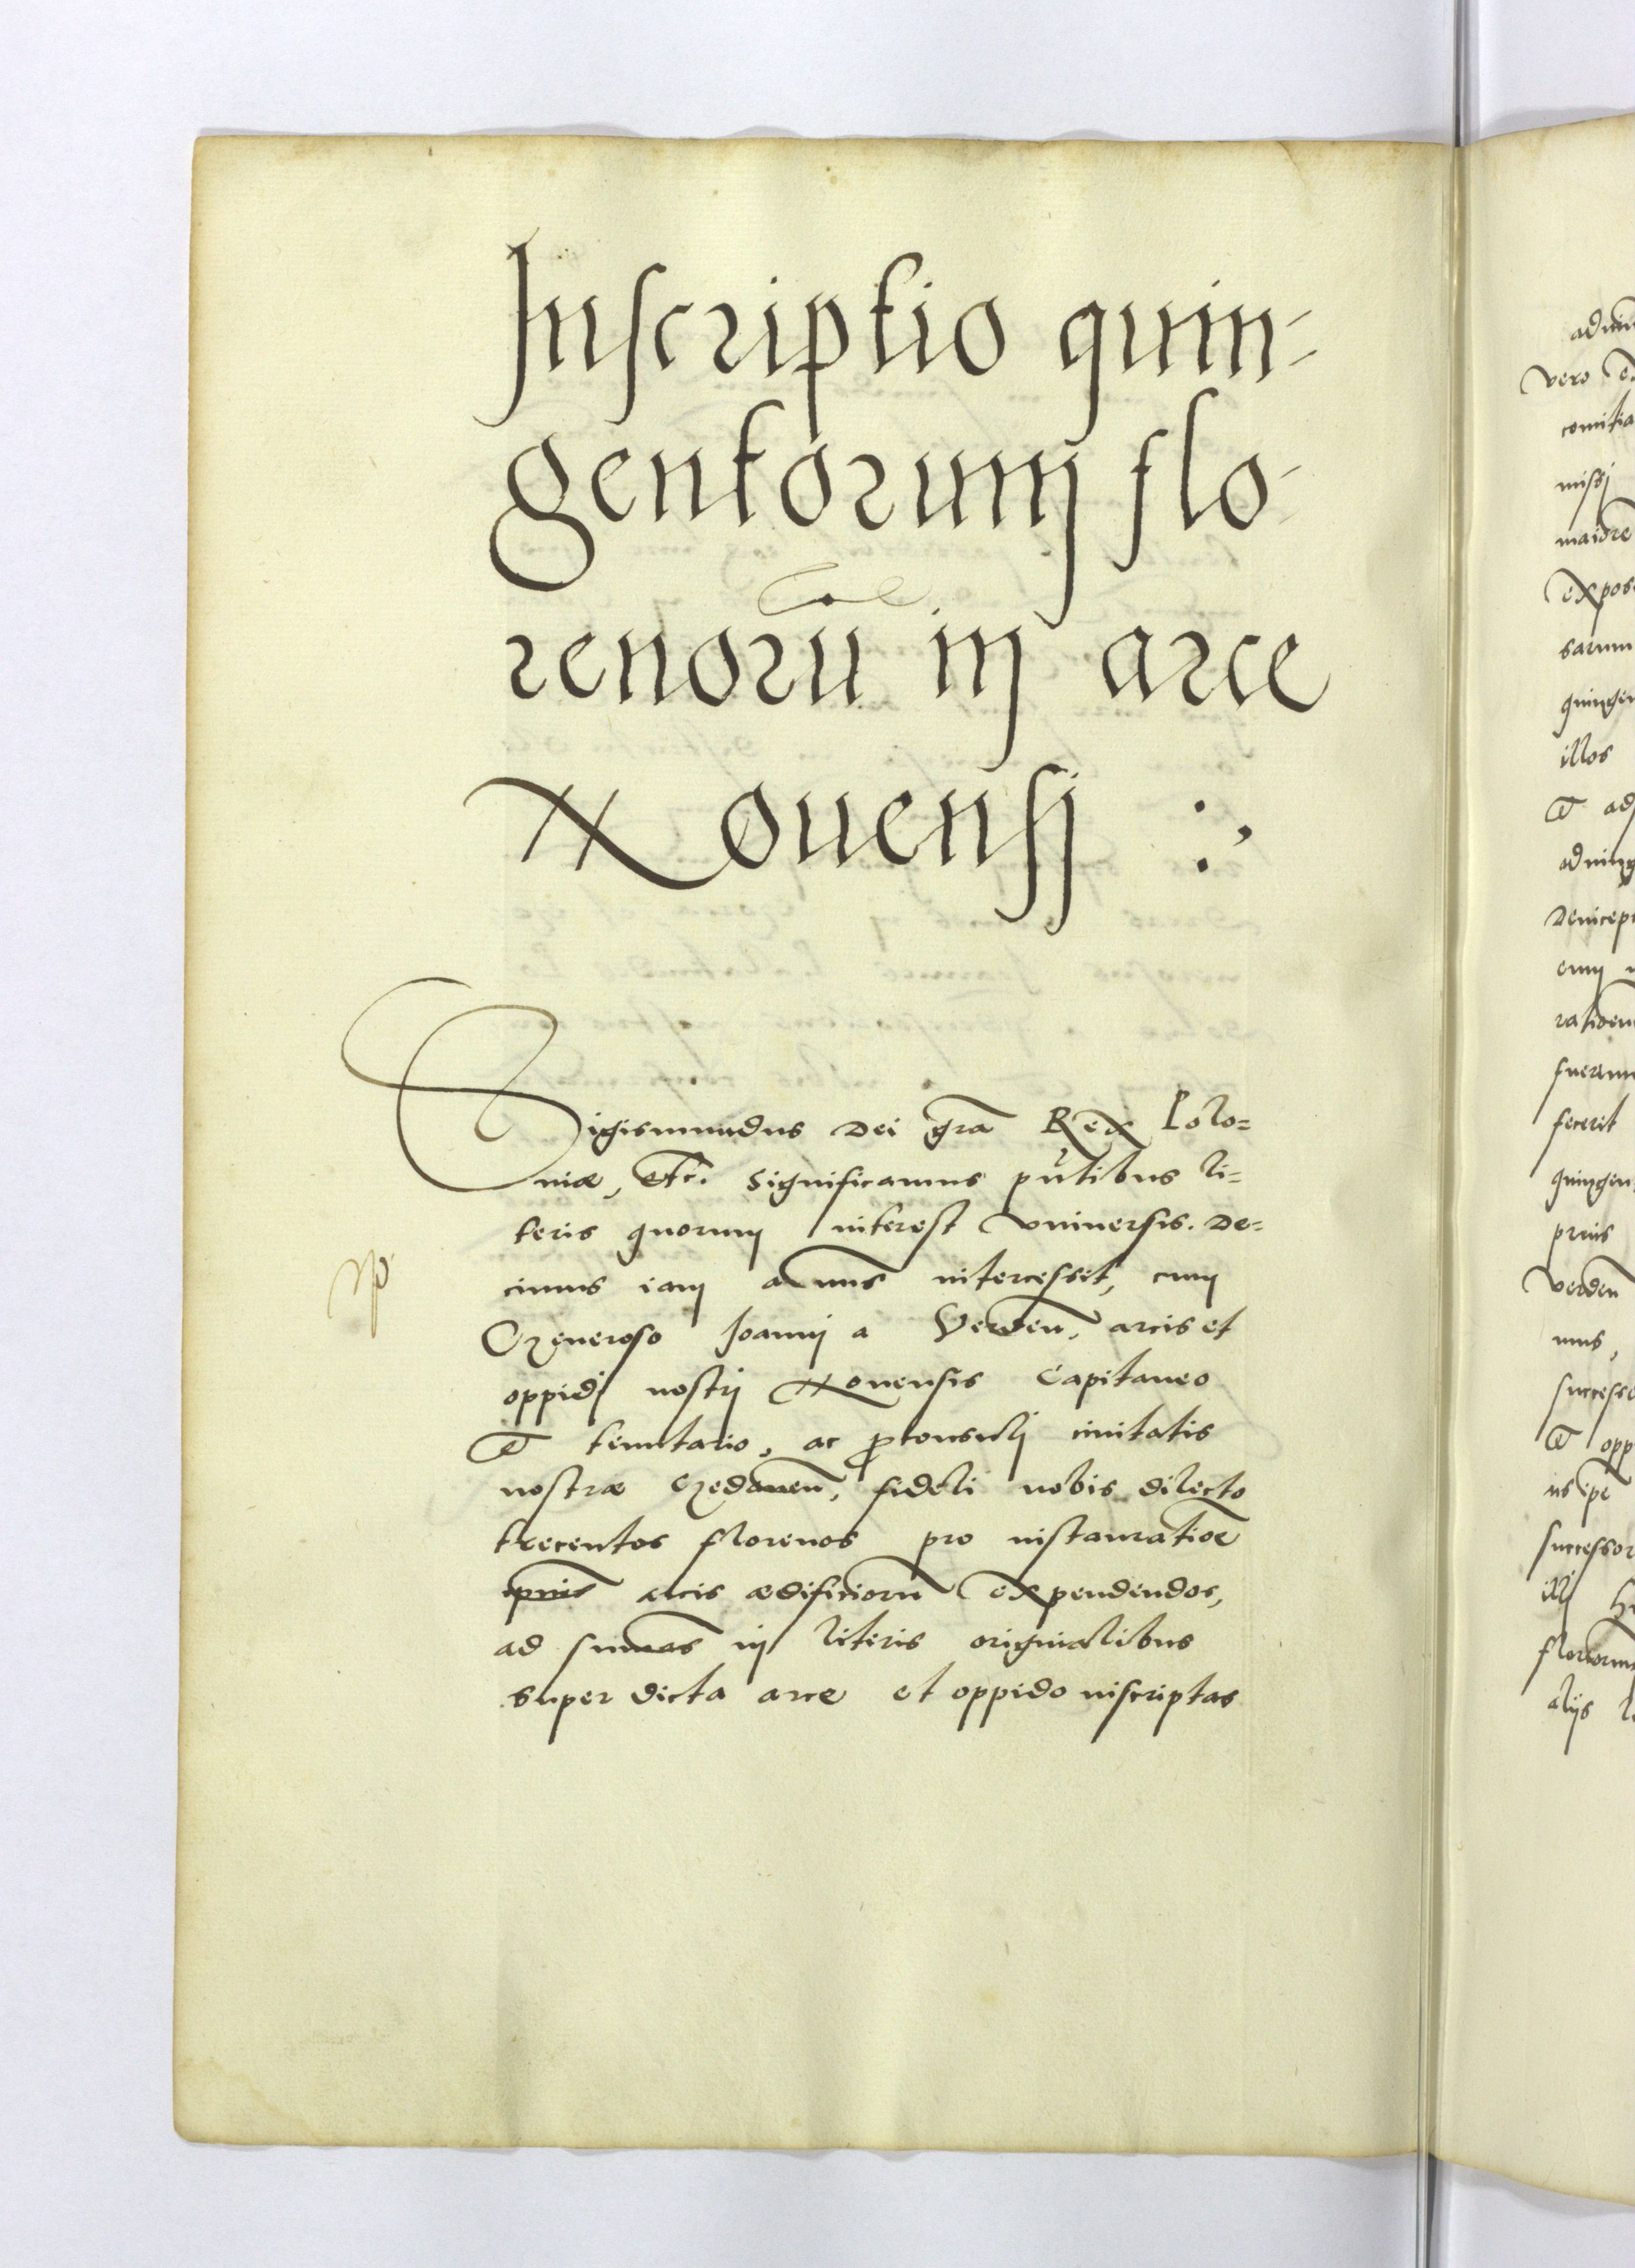 Inscriptio quin-
gentorum flo-
renorū in arce
Nouensi :
Sigismundus Dei gra͠ Rex Polo=
niæ, etc. Significamus pn͠tibus li=
teris quorum interest vniuersis. De=
cimus iam annus intercessit, cum
Generoso Joanni a Verden͠, arcis et
oppidi nostri Nouensis Capitaneo
et tenutario, ac proconsuli ciuitatis
nostræ Gedanen͠, fideli nobis dilecto
trecentos florenos pro instauratio͠e
arcis ædificiorū expendendos,
ad sum͠as in literis originalibus
super dicta arce et oppido inscriptas
vero
comitia
missi
maiore
expos
sarum
quingen
illos
et ad
ration
fuerun
fecerit
quingen
prius
verden
mus,
successo
et opp
successor
illi
florenorum
alijs